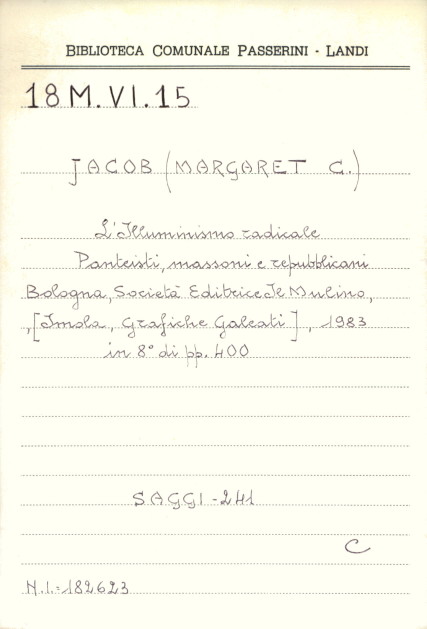 BIBLIOTECA COMUNALE PASSERINI - LANDI
18 M. VI. 15
JACOB (MARGARET C.)
L'Illuminismo radicale
Panteisti, massoni e repubblicani
Bologna, Società Editrice Il Mulino,
, [Imola, Grafiche Galeati], 1983
in 8° di pp. 400
SAGGI - 241
C
N.I.=182623